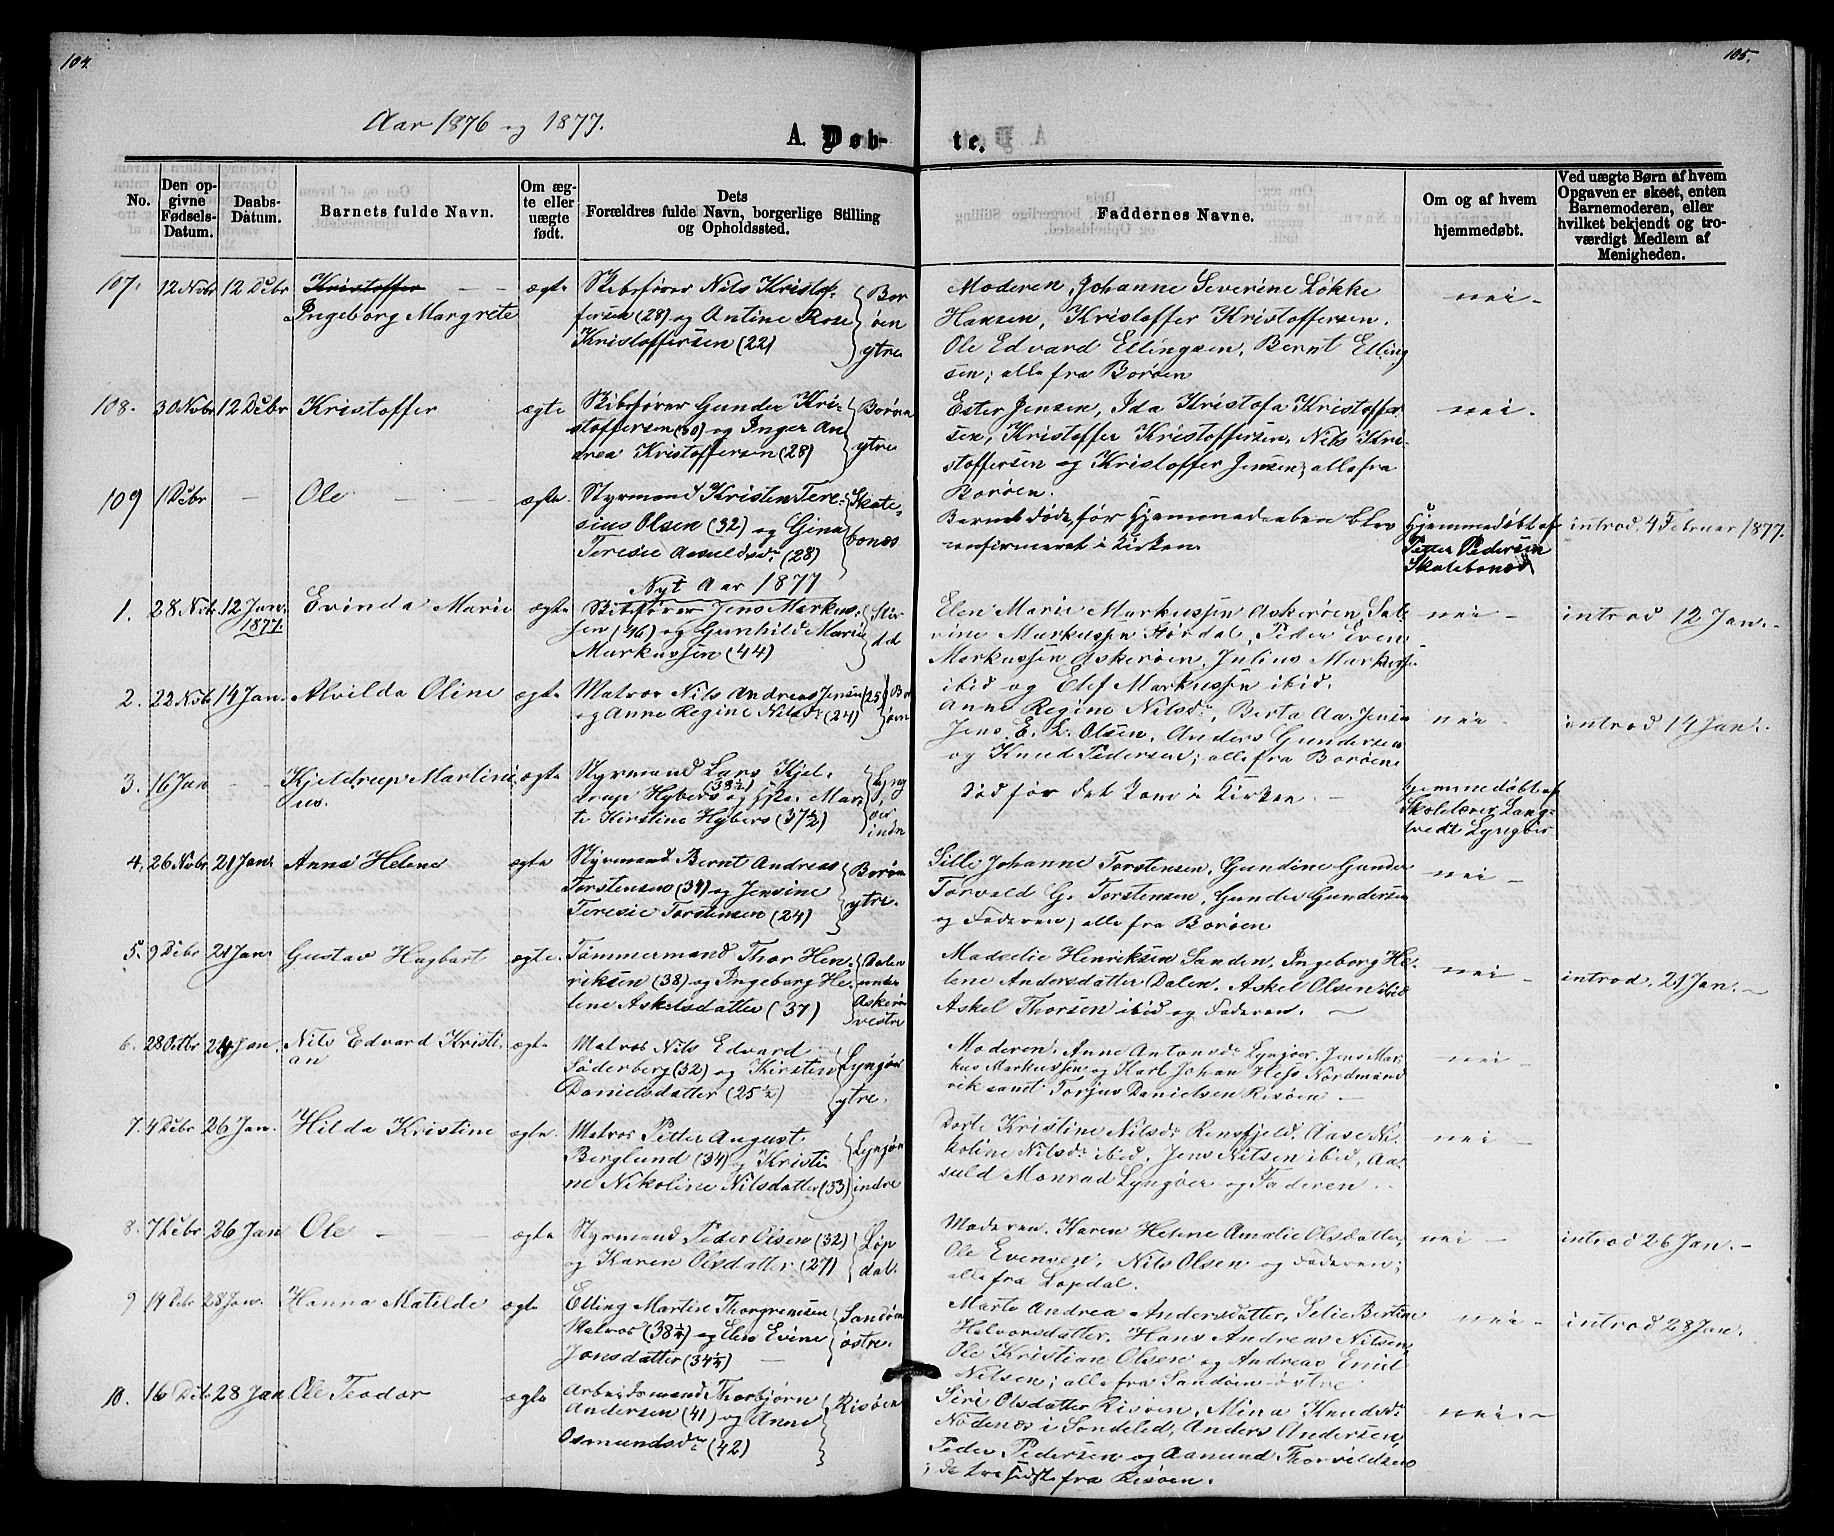 104.
105.
Aar 1876 og 1877.
A. Døb-
te.
No.
Den op-
givne
Fødsels-
Datum.
Daabs-
Datum.
Barnets fulde Navn.
Om æg-
te eller
uægte
født.
Dets
Forældres fulde Navn, borgerlige Stilling
og Opholdssted.
Faddernes Navne.
Om og af hvem
hjemmedøbt.
Ved uægte Børn af hvem
Opgaven er skeet, enten
Barnemoderen, eller
hvilket bekjendt og tro-
værdigt Medlem af
Menigheden.
107.
12 Novbr
12 Debr
Kristoffer
Ingeborg Margrete
ægte
Skibsfører Nils Kristof-
fersen (28) og Antine Rose
Kristoffersen (22)
Bor
øen
ytre
Moderen, Johanne Severine Løkke
Hansen, Kristoffer Kristoffersen.
Ole Edvard Ellingsen, Bernt Elling
sen; alle fra Borøen
nei -
108.
30 Novbr
12 Debr
Kristoffer
ægte
Skibsfører Gunder Kri-
stoffersen (30) og Inger An
drea Kristoffersen (28)
Borøen
ytre
Ester Jensen, Ida Kristofa Kristoffer
sen, Kristoffer Kristoffersen, Nils Kri-
stoffersen og Kristoffer Jensen; alle fra
Borøen.
nei -
109
1 Debr
-
Ole
ægte.
Styrmand Kristen Tere-
sius Olsen (32) og Gina
Teresie Aasuldsdr (28)
Skate-
bonæs
Barnet døde, før Hjemmedaaben blev
confirmeret i Kirken.
Hjemmedøbt af
Petter Pedersen
Skatebonæs
introd. 4 Februar 1877.
Nyt Aar 1877
1.
28 Nbr.
12 Jan.
1877
Evinda Marie
ægte
Skibsfører Jens Markus-
sen (46) og Gunhild Marie
Markussen (44)
Elen Marie Markussen Askerøen, Sal-
vine Markussen Størdal, Peder Even
Markussen Askerøen, Julius Markussen
ibid og Elef Markussen ibid.
nei -
introd 12 Jan. -
2.
22 Nvbr
14 Jan.
Alvilda Oline
ægte
Matros Nils Andreas Jensen (25)
og Anne Regine Nilsdr (24)
Bor
øen
Anne Regine Nilsdr, Berta Aa. Jensen
Jens E. L. Olsen, Anders Gundersen
og Knud Pedersen; alle fra Borøen
nei -
introd 14 Jan. -
3.
16 Jan
-
Kjeldrup Martini
us.
ægte
Styrmand Lars Kjel-
drup Hybers (38½) og Mar-
te Kirstine Hybers (37½)
Lyng
øer
indre
Død før det kom i Kirken. -
hjemmedøbt af
Skolelærer Lang-
vedt Lyngør
4.
26 Novbr
21 Jan.
Anna Helene
ægte
Styrmand Bernt Andreas
Torstensen (34) og Jensine
Teresie Torstensen (24)
Borøen
ytre.
Silli Johanne Torstensen, Gundine Gunder
Torvald G. Torstensen, Gunder Gundersen
og Faderen; alle fra Borøen
nei -
5.
9 Debr
21 Jan.
Gustav Hagbart
ægte.
Tømmermand Thor Hen
riksen (38) og Ingeborg He-
lene Askelsdatter (37)
Dalen
under
Askerø
vestre
Madselie Henriksen Sanden, Ingeborg He-
lene Andersdatter Dalen, Askel Olsen ibid
Askel Thorsen ibid og Faderen. -
nei -
introd. 21 Jan. -
6.
28 Octbr
24 Jan.
Nils Edvard Kristi-
an
ægte
Matros Nils Edvard
Søderberg (32) og Kirsten
Danielsdatter (25½)
Lyngør
ytre.
Moderen, Anne Antonsdr Lyngøer, Jens Mar-
kus Markussen og Karl Johan Hess Nordmand
vik samt Torjus Danielsen Risøen -
nei
7.
4 Debr
26 Jan.
Hilda Kristine
ægte.
Matros Petter August
Berglund (34) og Kristi
ne Nikoline Nilsdatter (33)
Lyngør
indre
Dorte Kristine Nilsdr Rensfjeld, Aase Ni-
koline Nilsdr ibid, Jens Nilsen ibid, Aa-
suld Monrad Lyngøer og Faderen.
nei -
8.
7 Debr
26 Jan
Ole -
ægte
Styrmand Peder Olsen (32)
og Karen Olsdatter (27)
Løp
dal.
Moderen, Karen Helene Amalie Olsdatter,
Ole Evensen, Nils Olsen og Faderen;
alle fra Løpdal.
nei -
introd 26 Jan. -
9
19 Debr
28 Jan.
Hanna Matilde
ægte
Elling Martin Thorgrensen
Matros (38¼) og Elen Evine
Jonsdatter (34½) -
Sandøen
østre.
Marte Andrea Andersdatter, Selie Bertine
Halvorsdatter, Hans Andreas Nilsen,
Ole Kristian Olsen og Andreas Emil
Nilsen; alle fra Sandøen østre
nei -
introd 28 Jan.
10.
16 Debr
28 Jan
Ole Teodor
ægte
Arbeidsmand Thorbjørn
Andersen (41) og Anne
Osmundsdr (42)
Risøen
Siri Olsdatter Risøen, Mina Knudsdr
Nødenæs i Søndeled, Anders Andersen,
Peder Pedersen og Aamund Thorvildsen
; de tre sidste fra Risøen.
nei. -